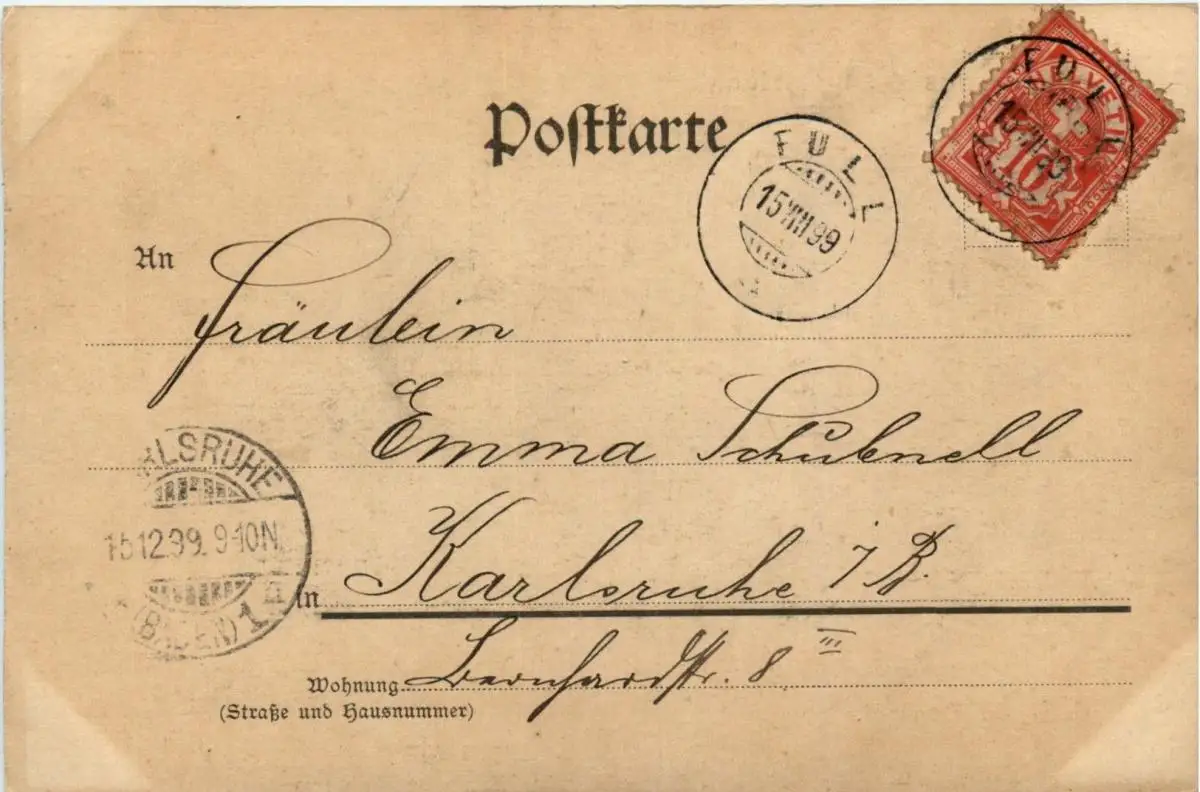 Postkarte
FULL
15 XII 99
FULL
15 XII 99
HELVETIA
10
An Fräulein
Emma Schübnell
in Karlsruhe i/B.
Wohnung Bernhardstr. 8 III
(Straße und Hausnummer)
KARLSRUHE
15.12.99. 9-10N.
(BADEN) 1